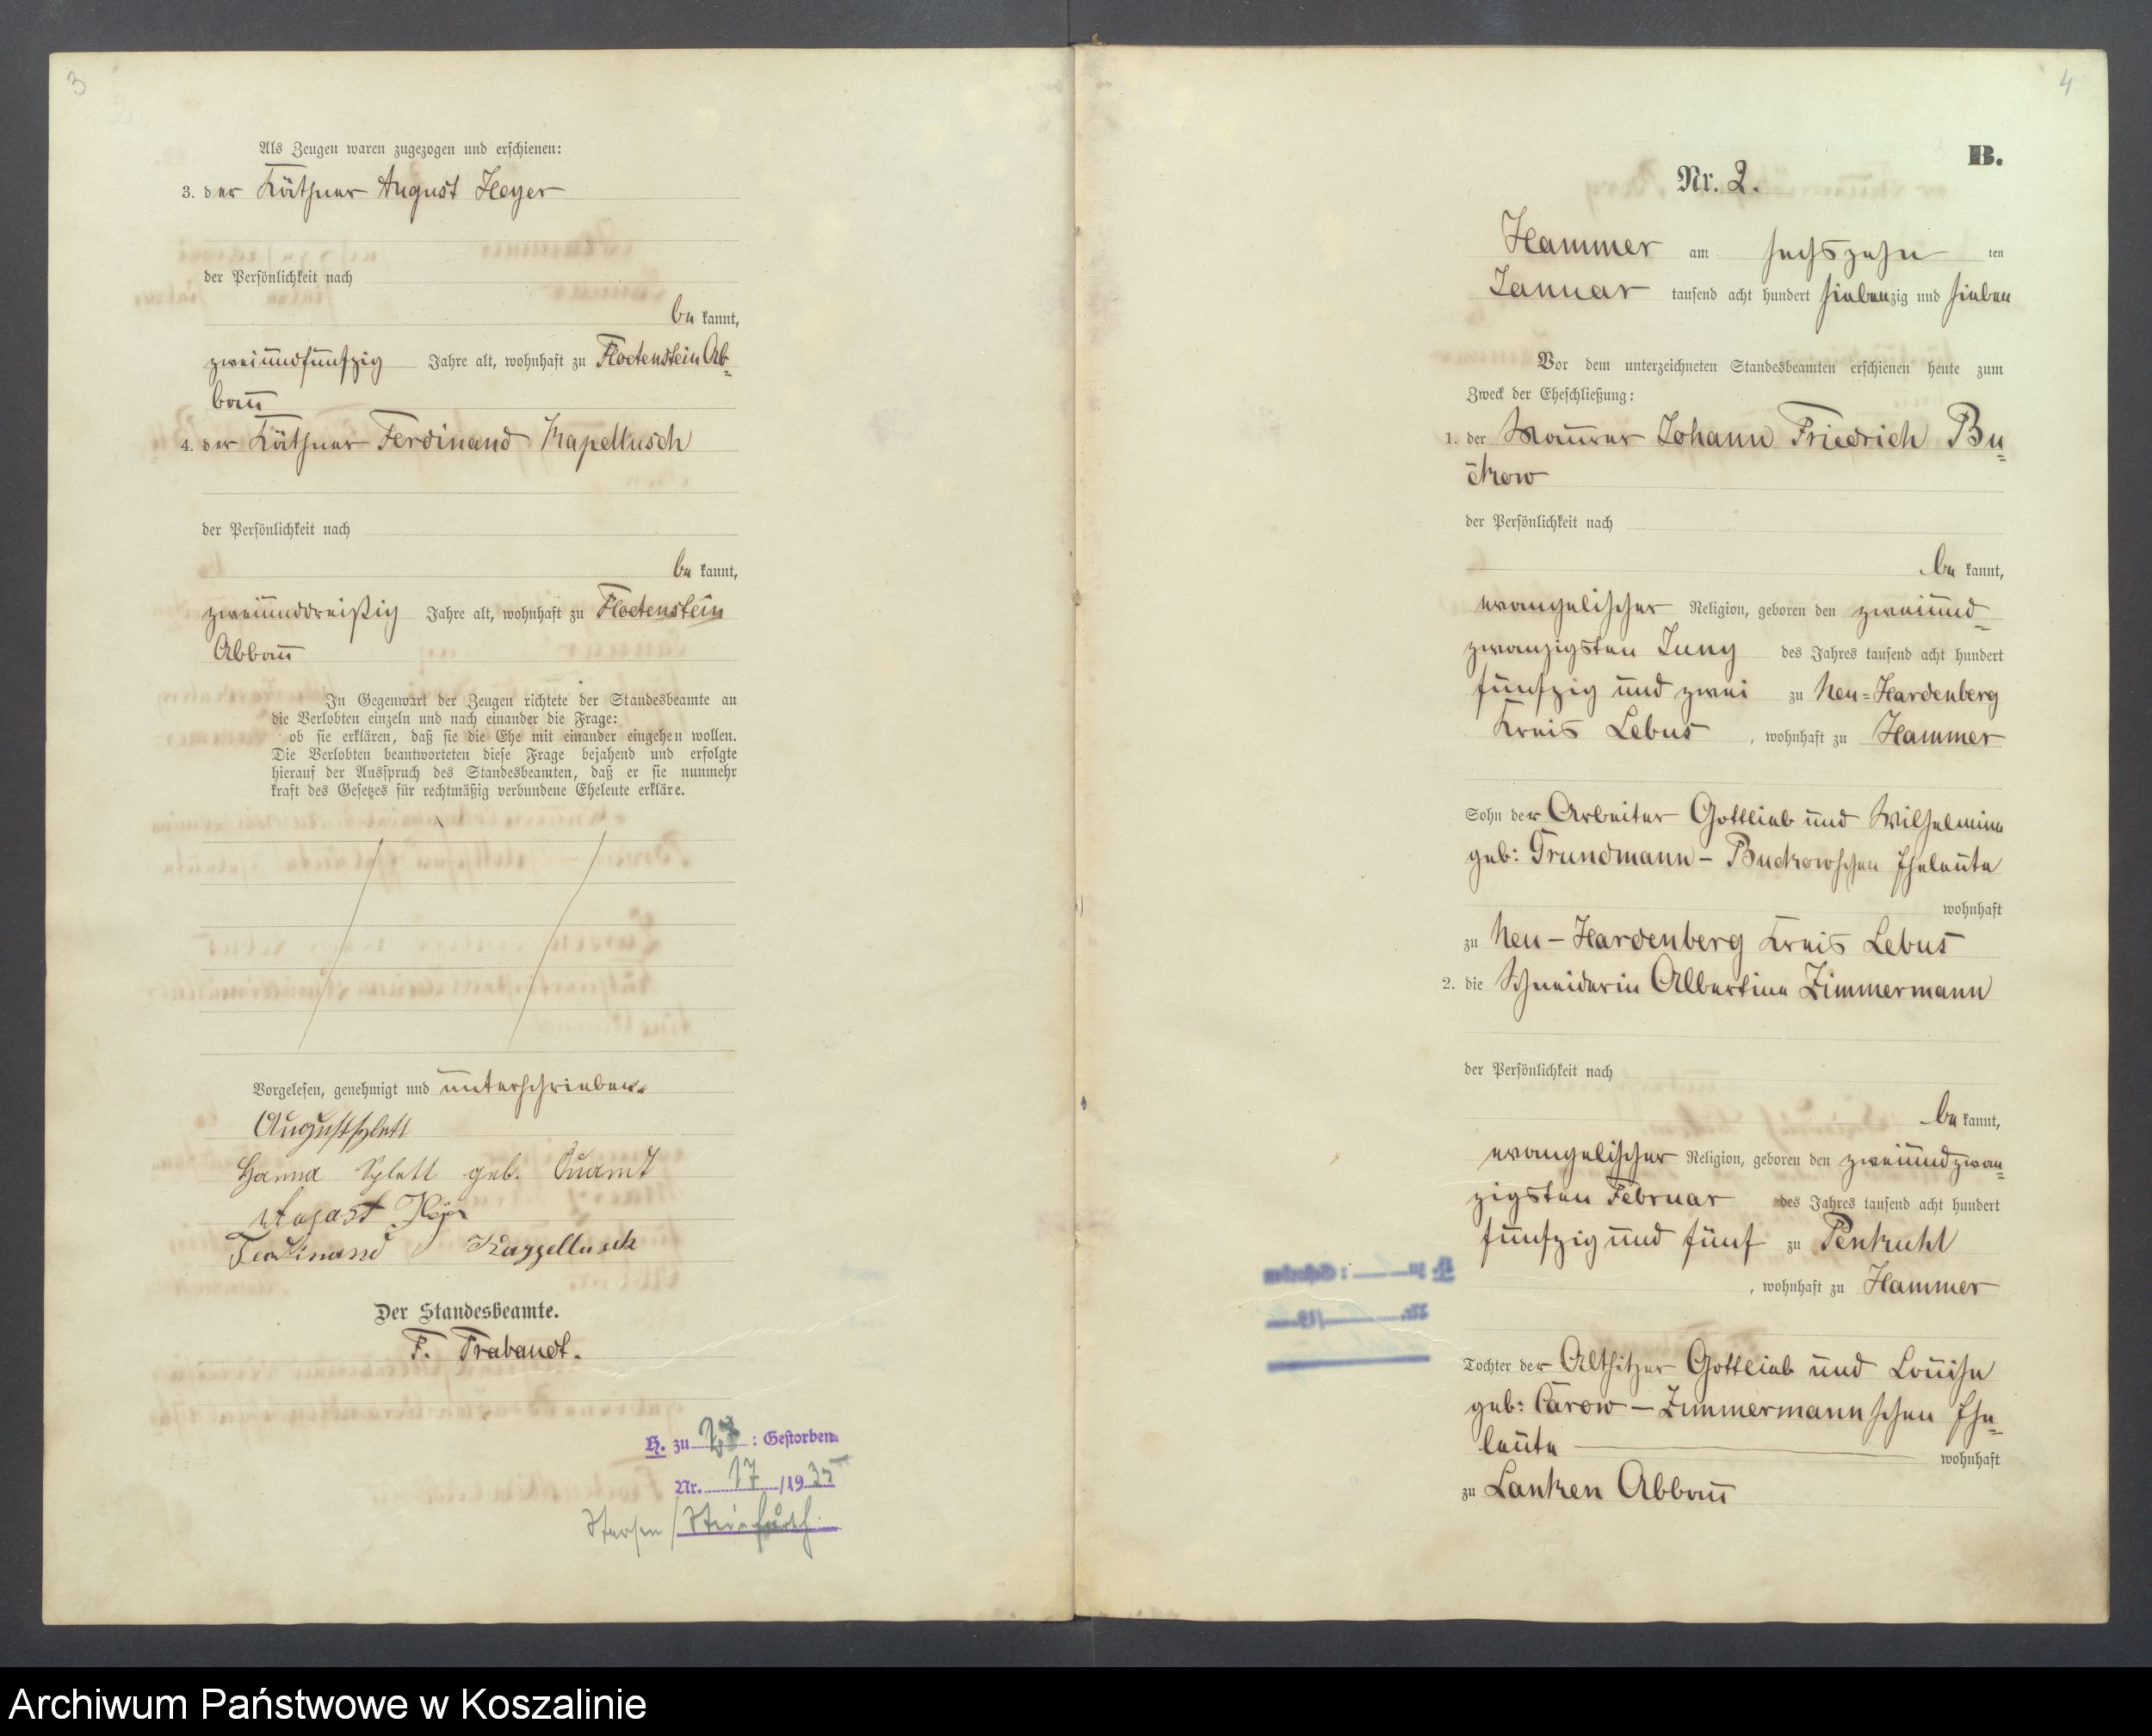 3
Als Zeugen waren zugezogen und erschienen:
3. der Käthner August Heyer
der Persönlichkeit nach
be kannt,
zweiundfünfzig Jahre alt, wohnhaft zu Floetenstein Ab=
bau
4. der Käthner Ferdinand Kapellusch
der Persönlichkeit nach
be kannt,
zweiunddreißig Jahre alt, wohnhaft zu Floetenstein
Abbau
In Gegenwart der Zeugen richtete der Standesbeamte an
die Verlobten einzeln und nach einander die Frage:
ob sie erklären, daß sie die Ehe mit einander eingehen wollen.
Die Verlobten beantworteten diese Frage bejahend und erfolgte
hierauf der Ausspruch des Standesbeamten, daß er sie nunmehr
kraft des Gesetzes für rechtmäßig verbundene Eheleute erkläre.
Vorgelesen, genehmigt und unterschrieben.
August Splett
Hanna Splett geb.
August Heyer
Ferdinand Kappellusch
Der Standesbeamte.
F. Trabandt.
H. zu : Gestorben
Nr. 17 /19 35
Steinfurth.
4
B.
Nr. 2.
Hammer am sechszehn ten
Januar tausend acht hundert siebenzig und sieben
Vor dem unterzeichneten Standesbeamten erschienen heute zum
Zweck der Eheschließung:
1. der Maurer Johann Friedrich Bu=
ckow
der Persönlichkeit nach
be kannt,
evangelischer Religion, geboren den zweiund=
zwanzigsten Juny des Jahres tausend acht hundert
fünfzig und zwei zu Neu=Hardenberg
Kreis Lebus , wohnhaft zu Hammer
Sohn der Arbeiter Gottlieb und Wilhelmine
geb: Grundmann - Buckowschen Eheleute
wohnhaft
zu Neu - Hardenberg Kreis Lebus
2. die Schneiderin Albertine Zimmermann
der Persönlichkeit nach
be kannt,
evangelischer Religion, geboren den zweiundzwan=
zigsten Februar des Jahres tausend acht hundert
fünfzig und fünf zu Penkuhl
, wohnhaft zu Hammer
Tochter der Altsitzer Gottlieb und Louise
geb: Carow - Zimmermannschen Ehe=
leute wohnhaft
zu Lanken Abbau
Archiwum Państwowe w Koszalinie